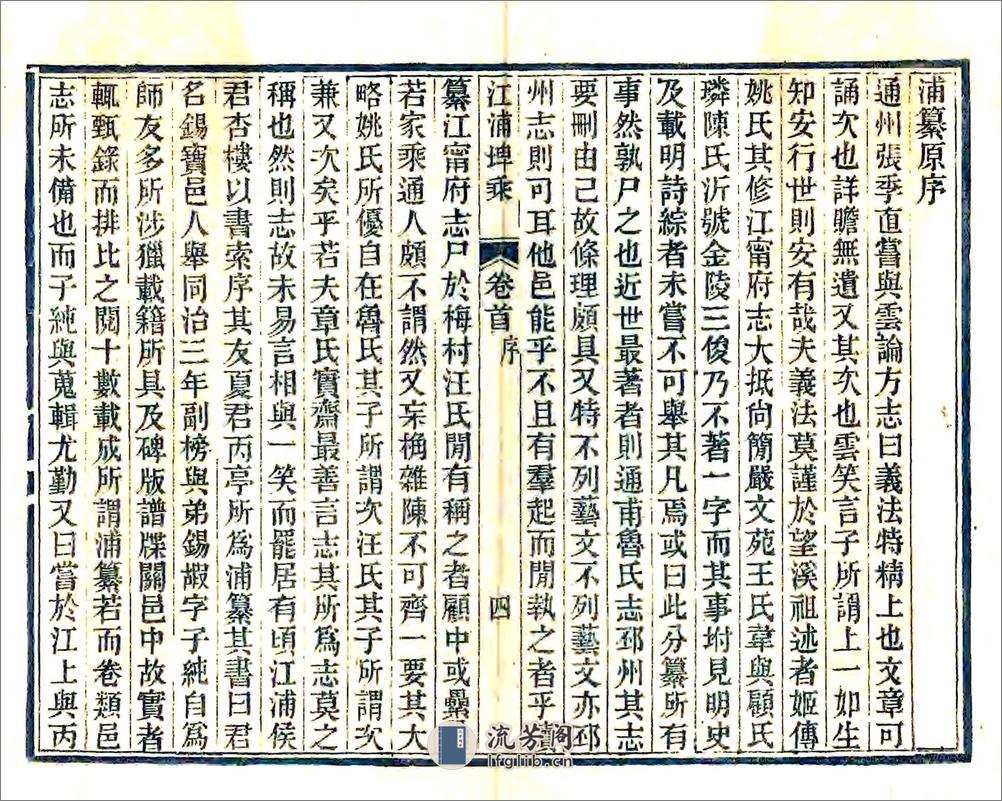 浦纂原序
通州張季直嘗與雲論方志曰義法特精上也文章可
誦次也詳贍無遺又其次也雲笑言子所謂上一如生
知安行世則安有哉夫義法莫謹於望溪祖述者姬傳
姚氏其修江甯府志大抵尚簡嚴文苑王氏韋與顧氏
璘陳氏沂號金陵三俊乃不著一字而其事坿見明史
及載明詩綜者未嘗不可舉其凡焉或曰此分纂所有
事然孰尸之也近世最著者則通甫魯氏志邳州其志
要刪由己故條理頗具又特不列藝文不列藝文亦邳
州志則可耳他邑能乎不且有羣起而閒執之者乎
江浦埤乘
卷首
序
四
纂江甯府志尸於梅村汪氏閒有稱之者顧中或纍
若家乘通人頗不謂然又宲桷雜陳不可齊一要其大
略姚氏所優自在魯氏其子所謂次汪氏其子所謂次
兼又次矣乎若夫章氏實齋最善言志其所為志莫之
稱也然則志故未易言相與一笑而罷居有頃江浦侯
君杏樓以書索序其友夏君丙亭所為浦纂其書曰君
名錫寶邑人舉同治三年副榜與弟錫嘏字子純自為
師友多所涉獵載籍所具及碑版譜牒關邑中故實者
輒甄錄而排比之閱十數載成所謂浦纂若而卷類邑
志所未備也而子純與蒐輯尤勤又曰嘗於江上與丙
流芳閣
lfglib.cn